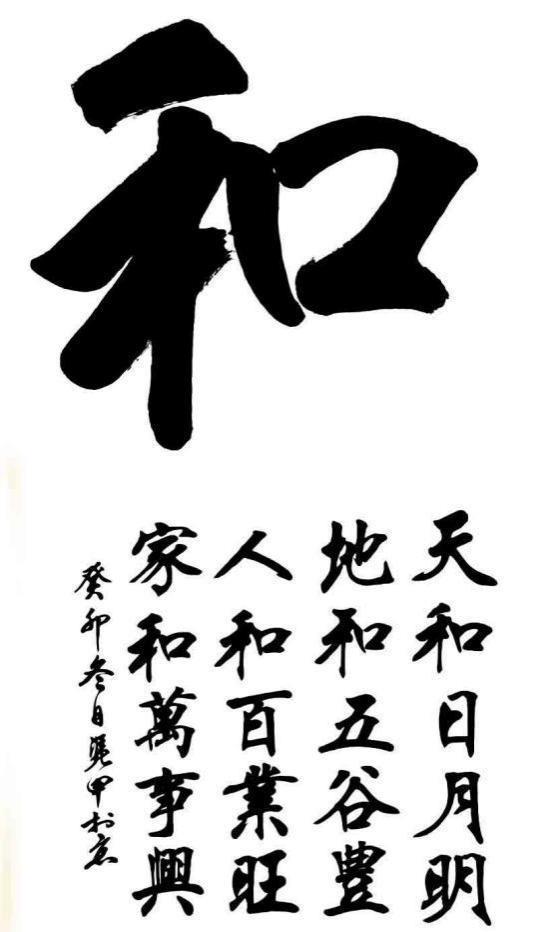 和
天和日月明
地和五谷豐
人和百業旺
家和萬事興
癸卯冬日兆甲於京